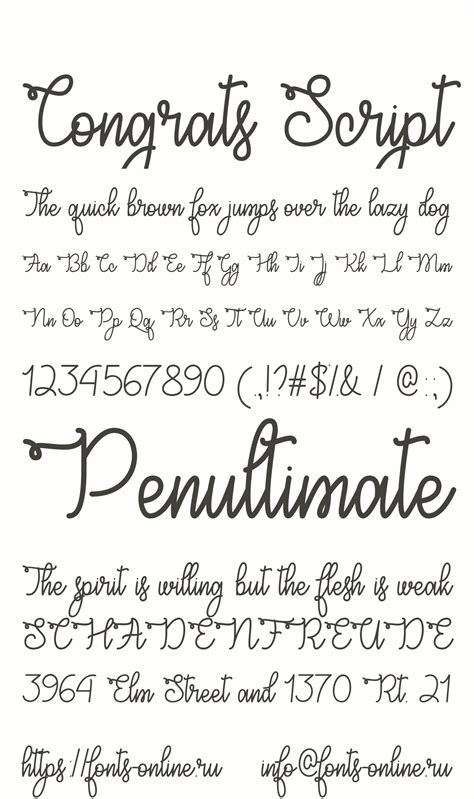 Congrats Script
The quick brown fox jumps over the lazy dog
Aa Bb Cc Dd Ee Ff Gg Hh Ii Jj Kk Ll Mm
Nn Oo Pp Qq Rr Ss Tt Uu Vv Ww Xx Yy Zz
1234567890 (.,!?#$%& / @:;)
Penultimate
The spirit is willing but the flesh is weak
SCHADENFREUDE
3964 Elm Street and 1370 Rt. 21
https://fonts-online.ru info@fonts-online.ru